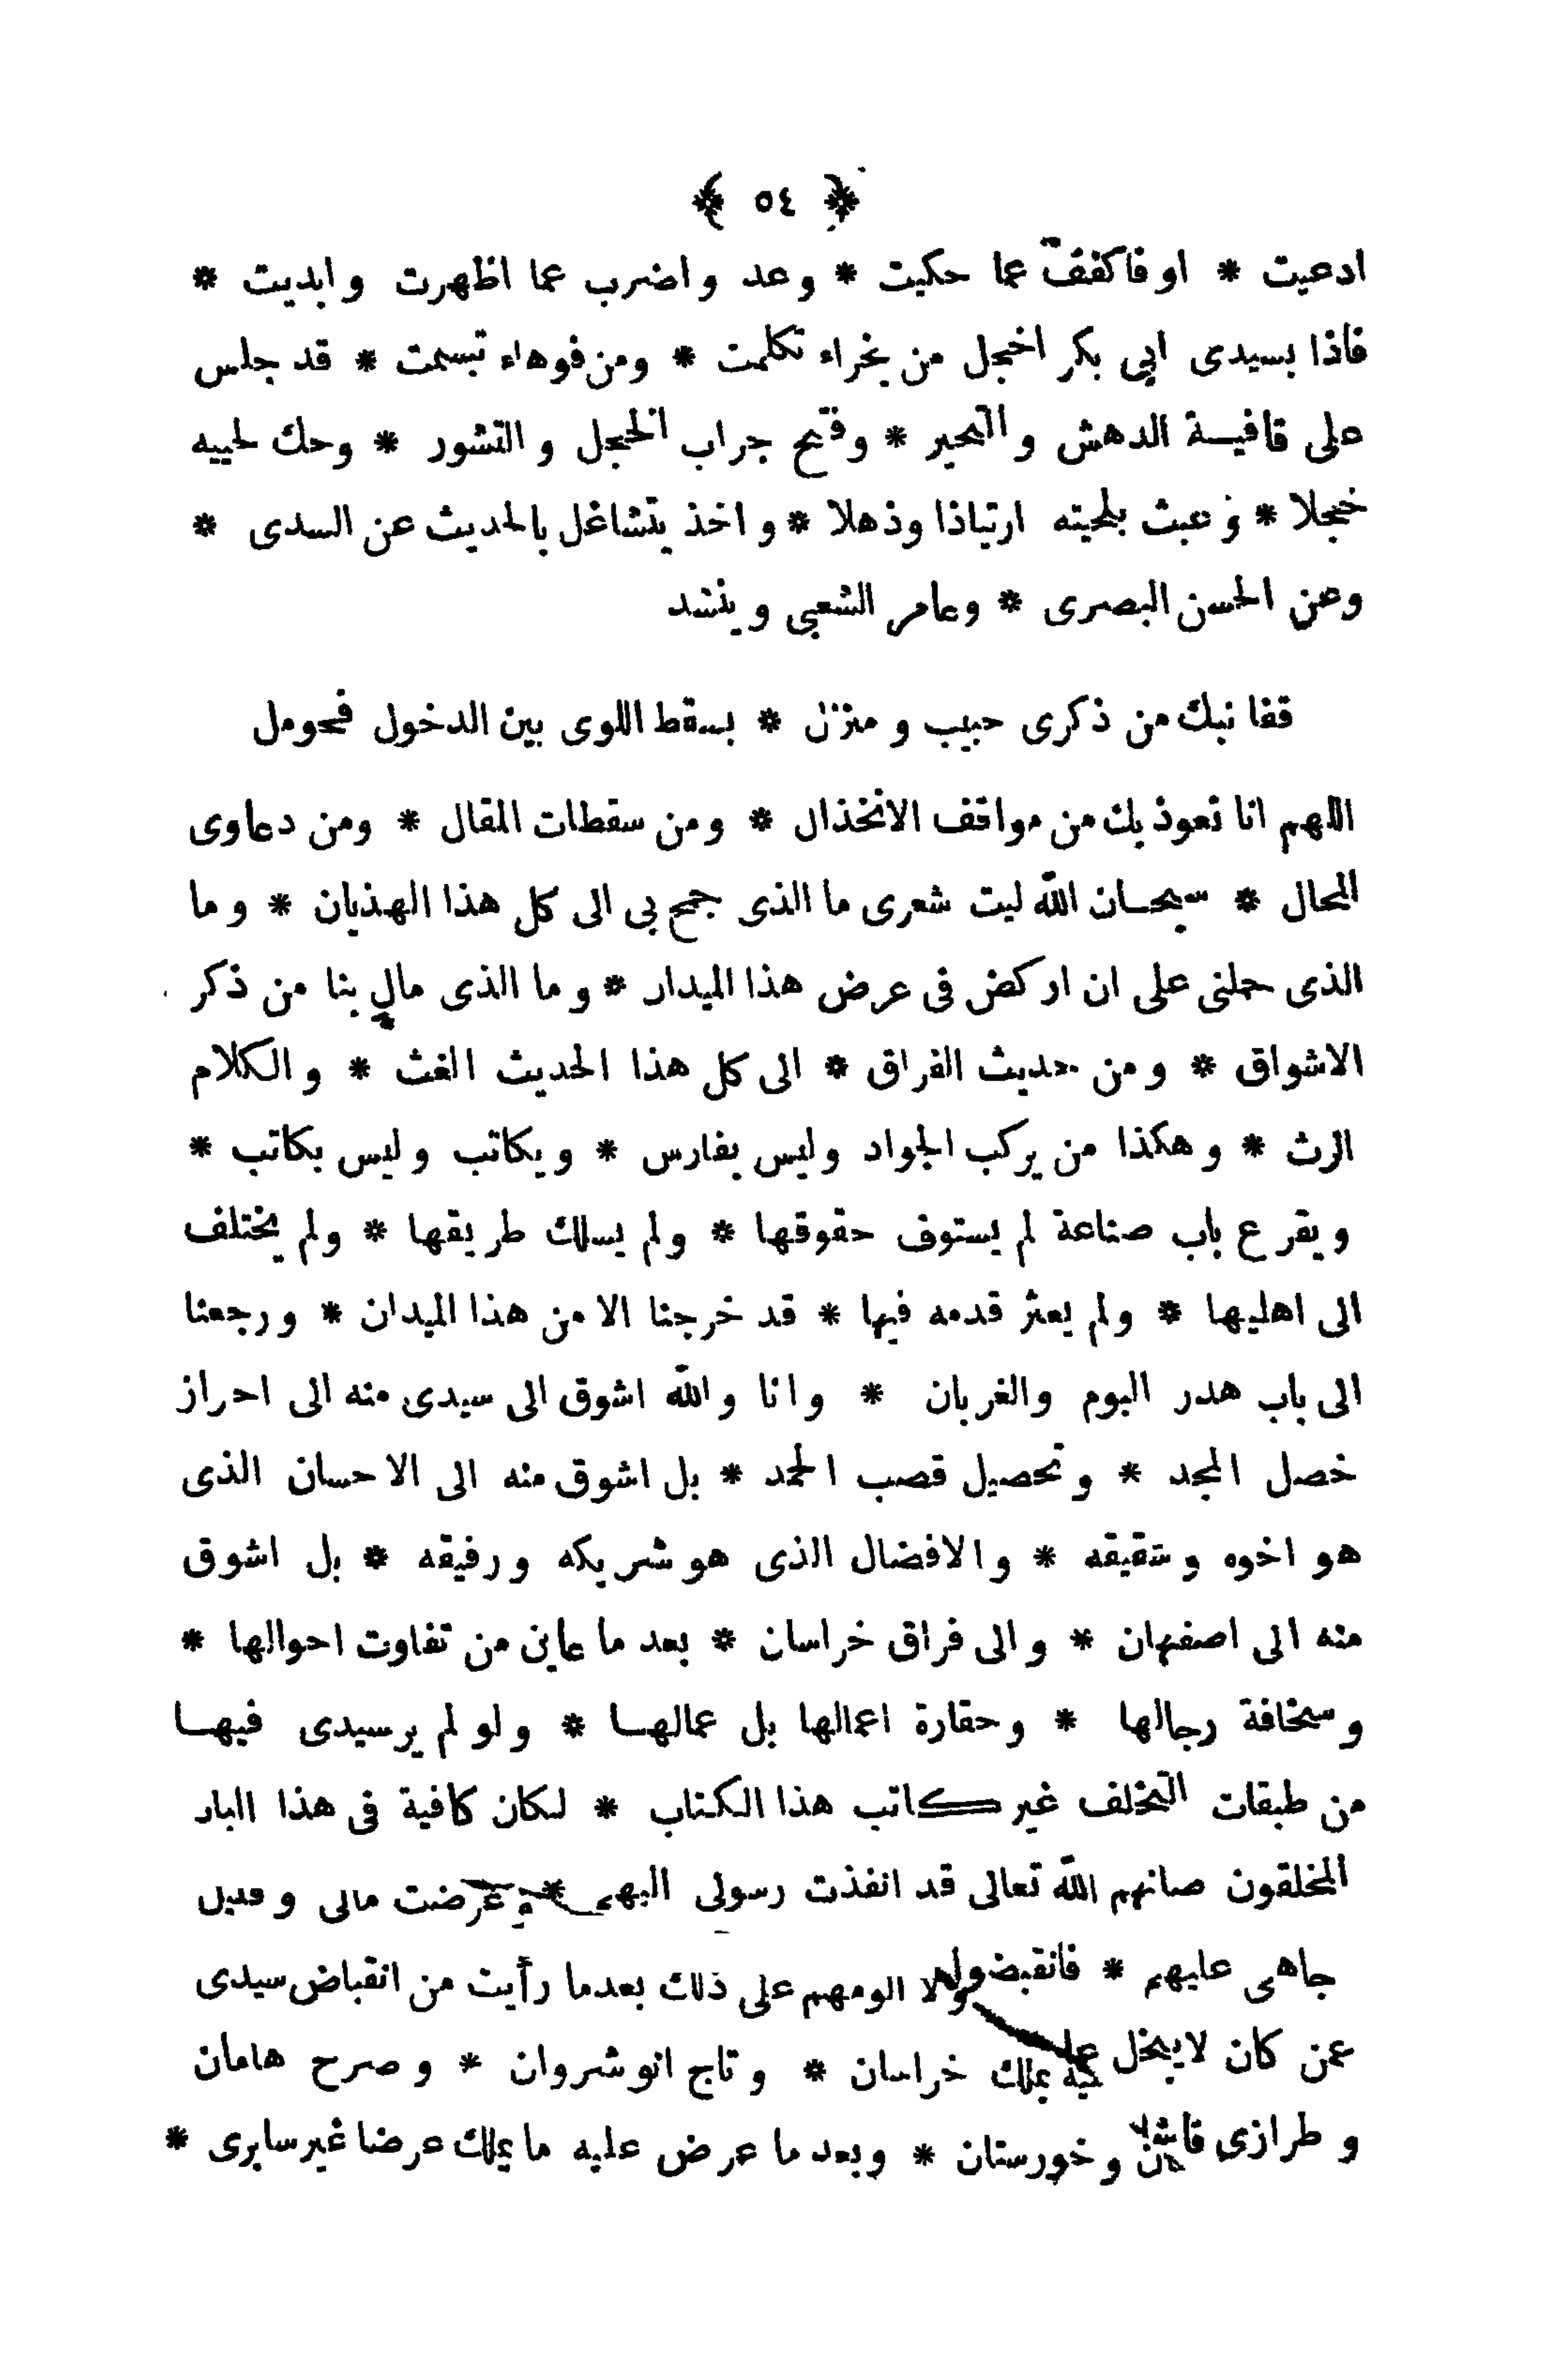 ﴿ ٥٤ ﴾
ادعيت * او فاكفف عما حكيت * وعد واضرب عما اظهرت وابديت *
فاذا بسيدى ابى بكر اخجل من بخراء تكلمت * ومن فوهاء تبسمت * قد جلس
على قافيـة الدهش والتحير * وفتح جراب الخجل والتشور * وحك لحييه
خجلا * وعبث بلحيته ارتباذا وذهلا * واخذ يتشاغل بالحديث عن السدى *
وعن الحسن البصرى * وعامر الشعبى وينشد
قفا نبك من ذكرى حبيب ومنزل * بسقط اللوى بين الدخول فحومل
اللهم انا نعوذ بك من مواقف الانخذال * ومن سقطات المقال * ومن دعاوى
المحال * سبحـان الله ليت شعرى ما الذى جمح بى الى كل هذا الهذيان * وما
الذى حملنى على ان اركض فى عرض هذا الميدان * وما الذى مال بنا من ذكر
الاشواق * ومن حديث الفراق * الى كل هذا الحديث الغث * والكلام
الرث * وهكذا من يركب الجواد وليس بفارس * ويكاتب وليس بكاتب *
ويقرع باب صناعة لم يستوف حقوقها * ولم يسلك طريقها * ولم يختلف
الى اهليها * ولم يعثر قدمه فيها * قد خرجنا الا من هذا الميدان * ورجعنا
الى باب هدر البوم والغربان * وانا والله اشوق الى سيدى منه الى احراز
خصل المجد * وتحصيل قصب الحمد * بل اشوق منه الى الاحسان الذى
هو اخوه وشقيقه * والافضال الذى هو شريكه ورفيقه * بل اشوق
منه الى اصفهان * والى فراق خراسان * بعد ما عاين من تفاوت احوالها *
وسخافة رجالها * وحقارة اعمالها بل عمالهـا * ولو لم ير سيدى فيهـا
من طبقات التخلف غير كاتب هذا الكتاب * لكان كافية فى هذا الباب
المخلقون صانهم الله تعالى قد انفذت رسولى اليهم * وعرضت مالى وقبل
جاهى عليهم * فانقبضوا ولا الومهم على ذلك بعدما رأيت من انقباض سيدى
عمن كان لا يبخل عليه بملك خراسان * وتاج انوشروان * وصرح هامان
وطرازى قاشان وخورستان * وبعد ما عرض عليه ما يملك عرضا غير سابرى *